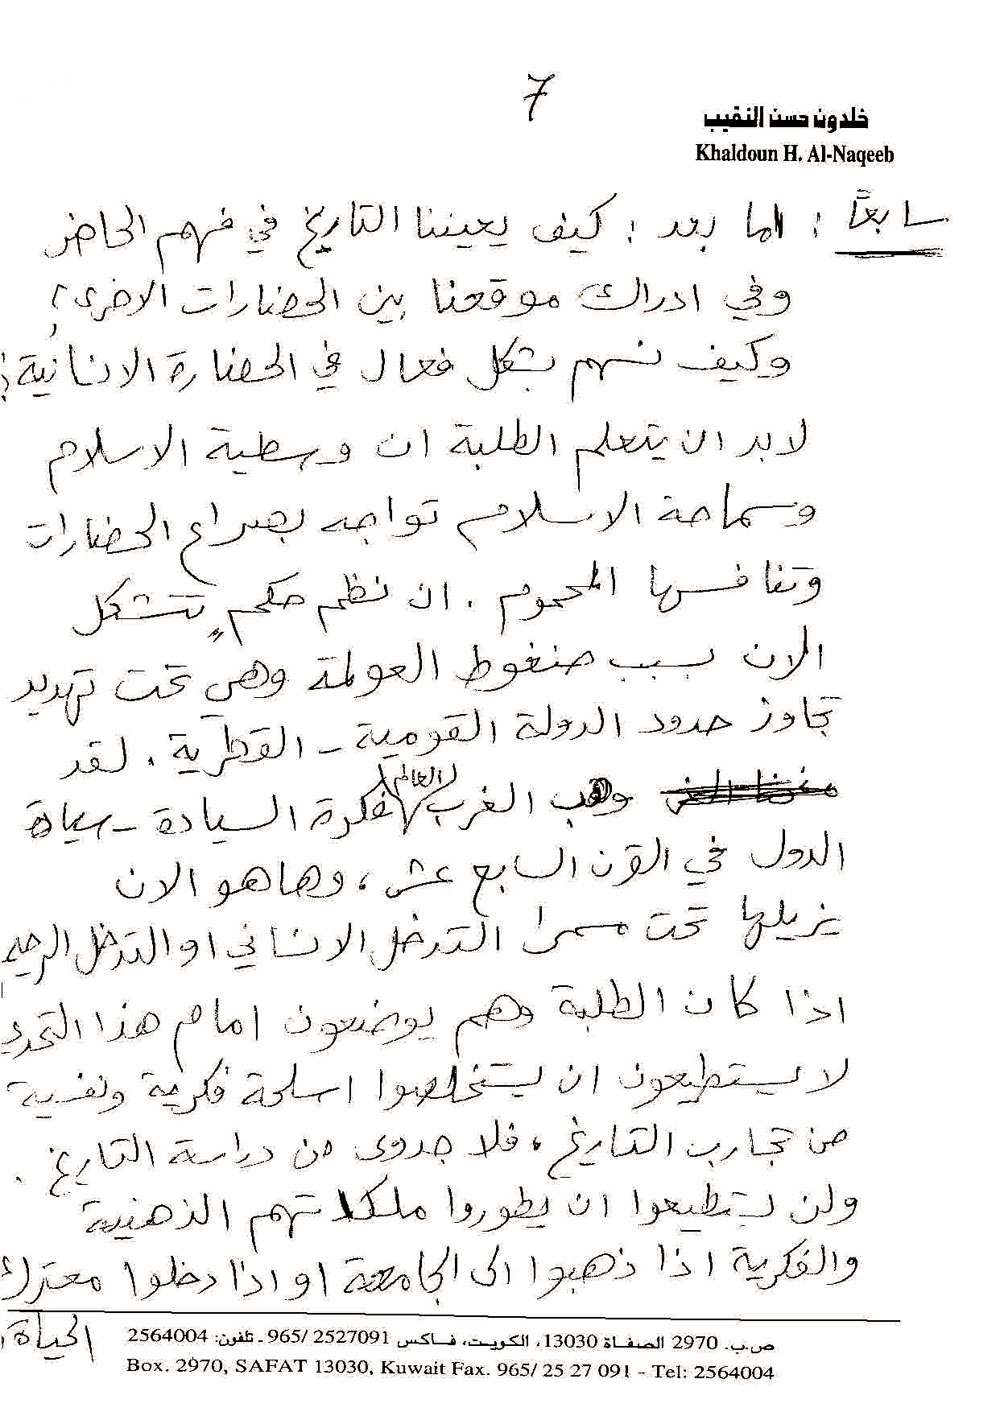 7
خلدون حسن النقيب
Khaldoun H. Al-Naqeeb
سابعاً : اما بعد : كيف يعيننا التاريخ في فهم الحاضر
وفي ادراك موقعنا بين الحضارات الاخرى ؟
وكيف نسهم بشكل فعال في الحضارة الانسانية ؟
لابد ان يتعلم الطلبة ان وسطية الاسلام
وسماحة الاسلام تواجه بصراع الحضارات
وتنافسها المحموم . ان نظم حكم تتشكل
الان بسبب ضغوط العولمة وهي تحت تهديد
تجاوز حدود الدولة القومية - القطرية . لقد
وهب الغرب للعالم فكرة السيادة - سيادة
الدول في القرن السابع عشر ، وهاهو الان
يزيلها تحت مسمى التدخل الانساني او التدخل الرحيم
اذا كان الطلبة وهم يوضعون امام هذا التحدي
لا يستطيعون ان يستخلصوا اسلحة فكرية ونفسية
من تجارب التاريخ ، فلا جدوى من دراسة التاريخ .
ولن يستطيعوا ان يطوروا ملكاتهم الذهنية
والفكرية اذا ذهبوا الى الجامعة او اذا دخلوا معترك
الحياة .
ص.ب. 2970 الصفاة 13030، الكويت، فاكس 2527091 /965 ـ تلفون: 2564004
Box. 2970, SAFAT 13030, Kuwait Fax. 965/ 25 27 091 - Tel: 2564004